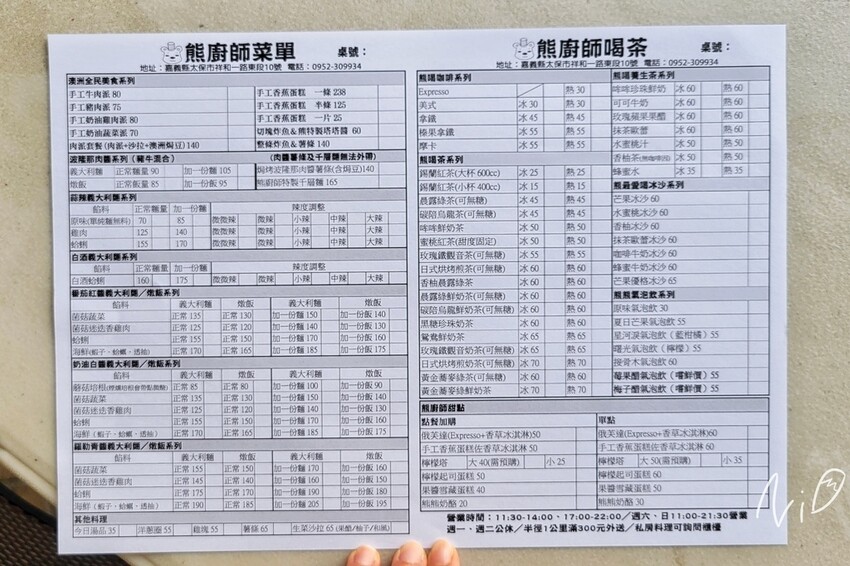 熊廚師菜單 桌號：
地址：嘉義縣太保市祥和一路東段10號 電話：0952-309934
澳洲全民美食系列
手工牛肉派 80 手工香蕉蛋糕 一條 238
手工豬肉派 75 手工香蕉蛋糕 半條 125
手工奶油雞肉派 80 手工香蕉蛋糕 一片 25
手工奶油蔬菜派 70 切塊炸魚&熊特製塔塔醬 60
肉派套餐(肉派+沙拉+澳洲焗豆) 140 整條炸魚&薯條 140
波隆那肉醬系列（豬牛混合） (肉醬薯條及千層麵無法外帶)
義大利麵 正常麵量 90 加一份麵 105 焗烤波隆那肉醬薯條(含焗豆)140
燉飯 正常飯量 85 加一份飯 95 熊廚師特製千層麵 165
蒜辣義大利麵系列
餡料 正常麵量 加一份麵 辣度調整
原味(單純麵無料) 70 85 微微辣 微辣 小辣 中辣 大辣
雞肉 125 140 微微辣 微辣 小辣 中辣 大辣
蛤蜊 155 170 微微辣 微辣 小辣 中辣 大辣
白酒義大利麵系列
餡料 正常麵量 加一份麵 辣度調整
白酒蛤蜊 160 175 微微辣 微辣 小辣 中辣 大辣
番茄紅醬義大利麵／燉飯系列
餡料 義大利麵 燉飯 義大利麵 燉飯
菌菇蔬菜 正常 135 正常 130 加一份麵 150 加一份飯 140
菌菇迷迭香雞肉 正常 125 正常 120 加一份麵 140 加一份飯 130
蛤蜊 正常 155 正常 150 加一份麵 170 加一份飯 160
海鮮(蝦子、蛤蠣、透抽) 正常 170 正常 165 加一份麵 185 加一份飯 175
奶油白醬義大利麵／燉飯系列
餡料 義大利麵 燉飯 義大利麵 燉飯
蘑菇培根 正常 85 正常 80 加一份麵 100 加一份飯 90
菌菇蔬菜 正常 135 正常 130 加一份麵 150 加一份飯 140
菌菇迷迭香雞肉 正常 125 正常 120 加一份麵 140 加一份飯 130
蛤蜊 正常 155 正常 150 加一份麵 170 加一份飯 160
海鮮（蝦子、蛤蠣、透抽） 正常 170 正常 165 加一份麵 185 加一份飯 175
羅勒青醬義大利麵／燉飯系列
餡料 義大利麵 燉飯 義大利麵 燉飯
菌菇蔬菜 正常 155 正常 150 加一份麵 170 加一份飯 160
菌菇迷迭香雞肉 正常 145 正常 140 加一份麵 160 加一份飯 150
蛤蜊 正常 175 正常 170 加一份麵 190 加一份飯 180
海鮮（蝦子、蛤蠣、透抽） 正常 190 正常 185 加一份麵 205 加一份飯 195
其他料理
今日湯品 35 洋蔥圈 55 雞塊 55 薯條 65 生菜沙拉 65 (果醋/柚子/和風)
熊廚師喝茶 桌號：
地址：嘉義縣太保市祥和一路東段10號 電話：0952-309934
熊喝咖啡系列
Expresso 熱 30
美式 冰 30 熱 30
拿鐵 冰 45 熱 45
榛果拿鐵 冰 55 熱 55
摩卡 冰 55 熱 55
熊喝茶系列
錫蘭紅茶(大杯 600cc) 冰 25 熱 25
錫蘭紅茶(小杯 400cc) 冰 15 熱 15
晨露綠茶(可無糖) 冰 45 熱 45
碳焙烏龍(可無糖) 冰 45 熱 45
哞哞鮮奶茶 冰 50 熱 50
蜜桃紅茶(甜度固定) 冰 50 熱 50
玫瑰鐵觀音茶(可無糖) 冰 55 熱 55
日式烘烤煎茶(可無糖) 冰 60 熱 60
香柚晨露綠茶 冰 60 熱 60
晨露綠鮮奶茶(可無糖) 冰 60 熱 60
碳焙烏龍鮮奶茶(可無糖) 冰 60 熱 60
黑糖珍珠奶茶 冰 60 熱 60
鴛鴦鮮奶茶 冰 65 熱 65
玫瑰鐵觀音奶茶(可無糖) 冰 65 熱 65
日式烘烤煎奶茶(可無糖) 冰 70 熱 70
黃金蕎麥綠茶(可無糖) 冰 60 熱 60
黃金蕎麥綠奶茶(可無糖) 冰 70 熱 70
熊喝養生茶系列
哞哞珍珠鮮奶 冰 60 熱 60
可可牛奶 冰 60 熱 60
玫瑰蘋果果醋 冰 60 熱 60
抹茶歐蕾 冰 60 熱 60
水蜜桃汁 冰 50 熱 50
香柚茶 冰 50 熱 50
蜂蜜水 冰 35 熱 35
熊最愛喝冰沙系列
芒果冰沙 60
水蜜桃冰沙 60
香柚冰沙 60
抹茶歐蕾冰沙 60
咖啡牛奶冰沙 60
蜂蜜牛奶冰沙 60
芒果優格冰沙 65
熊熊氣泡飲系列
原味氣泡飲 30
夏日芒果氣泡飲 55
星河淚氣泡飲（藍柑橘）55
曙光氣泡飲（檸檬）55
接骨木氣泡飲 60
莓果醋氣泡飲（嚐鮮價）55
梅子醋氣泡飲（嚐鮮價）55
熊廚師甜點
點餐加購 單點
俄芙達(Expresso+香草冰淇淋)50 俄芙達(Expresso+香草冰淇淋)60
手工香蕉蛋糕佐香草冰淇淋 50 手工香蕉蛋糕佐香草冰淇淋 60
檸檬塔 大 40(需預購) 小 25 檸檬塔 大 50(需預購) 小 35
檸檬起司蛋糕 50 檸檬起司蛋糕 60
果醬雪藏蛋糕 40 果醬雪藏蛋糕 50
熊熊奶酪 20 熊熊奶酪 30
營業時間：11:30-14:00、17:00-22:00／週六、日11:00-21:30營業
週一、週二公休／半徑1公里滿300元外送／私房料理可詢問櫃檯